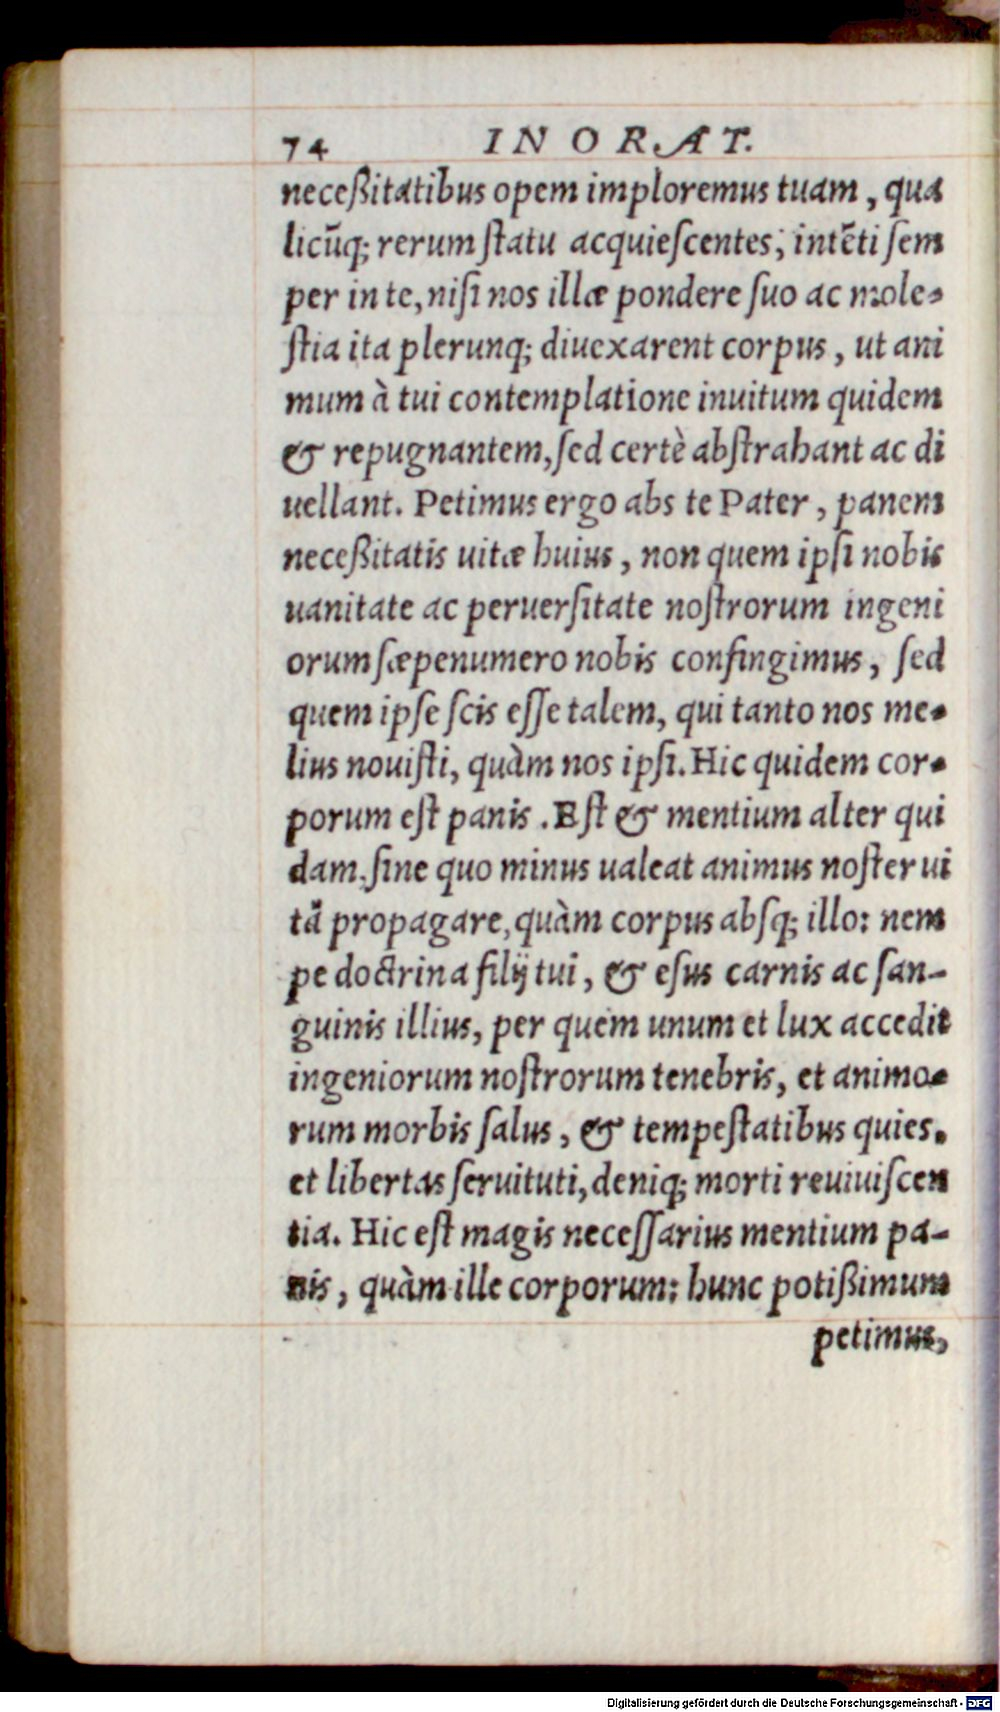 74 IN ORAT.
neceßitatibus opem imploremus tuam, qua
licũq; rerum ſtatu acquieſcentes, intẽti ſem
per in te, niſi nos illæ pondere ſuo ac mole-
ſtia ita plerunq; diuexarent corpus, ut ani
mum à tui contemplatione inuitum quidem
& repugnantem, ſed certè abſtrahant ac di
uellant. Petimus ergo abs te Pater, panem
neceßitatis uitæ huius, non quem ipſi nobis
uanitate ac peruerſitate noſtrorum ingeni
orum ſæpenumero nobis confingimus, ſed
quem ipſe ſcis eſſe talem, qui tanto nos me-
lius nouiſti, quàm nos ipſi. Hic quidem cor-
porum eſt panis. Eſt & mentium alter qui
dam. ſine quo minus ualeat animus noſter ui
tã propagare, quàm corpus abſq; illo: nem
pe doctrina filij tui, & eſus carnis ac ſan-
guinis illius, per quem unum et lux accedit
ingeniorum noſtrorum tenebris, et animo-
rum morbis ſalus, & tempeſtatibus quies.
et libertas ſeruituti, deniq; morti reuiuiſcen
tia. Hic eſt magis neceſſarius mentium pa-
nis, quàm ille corporum: hunc potißimum
petimus,
Digitalisierung gefördert durch die Deutsche Forschungsgemeinschaft - DFG